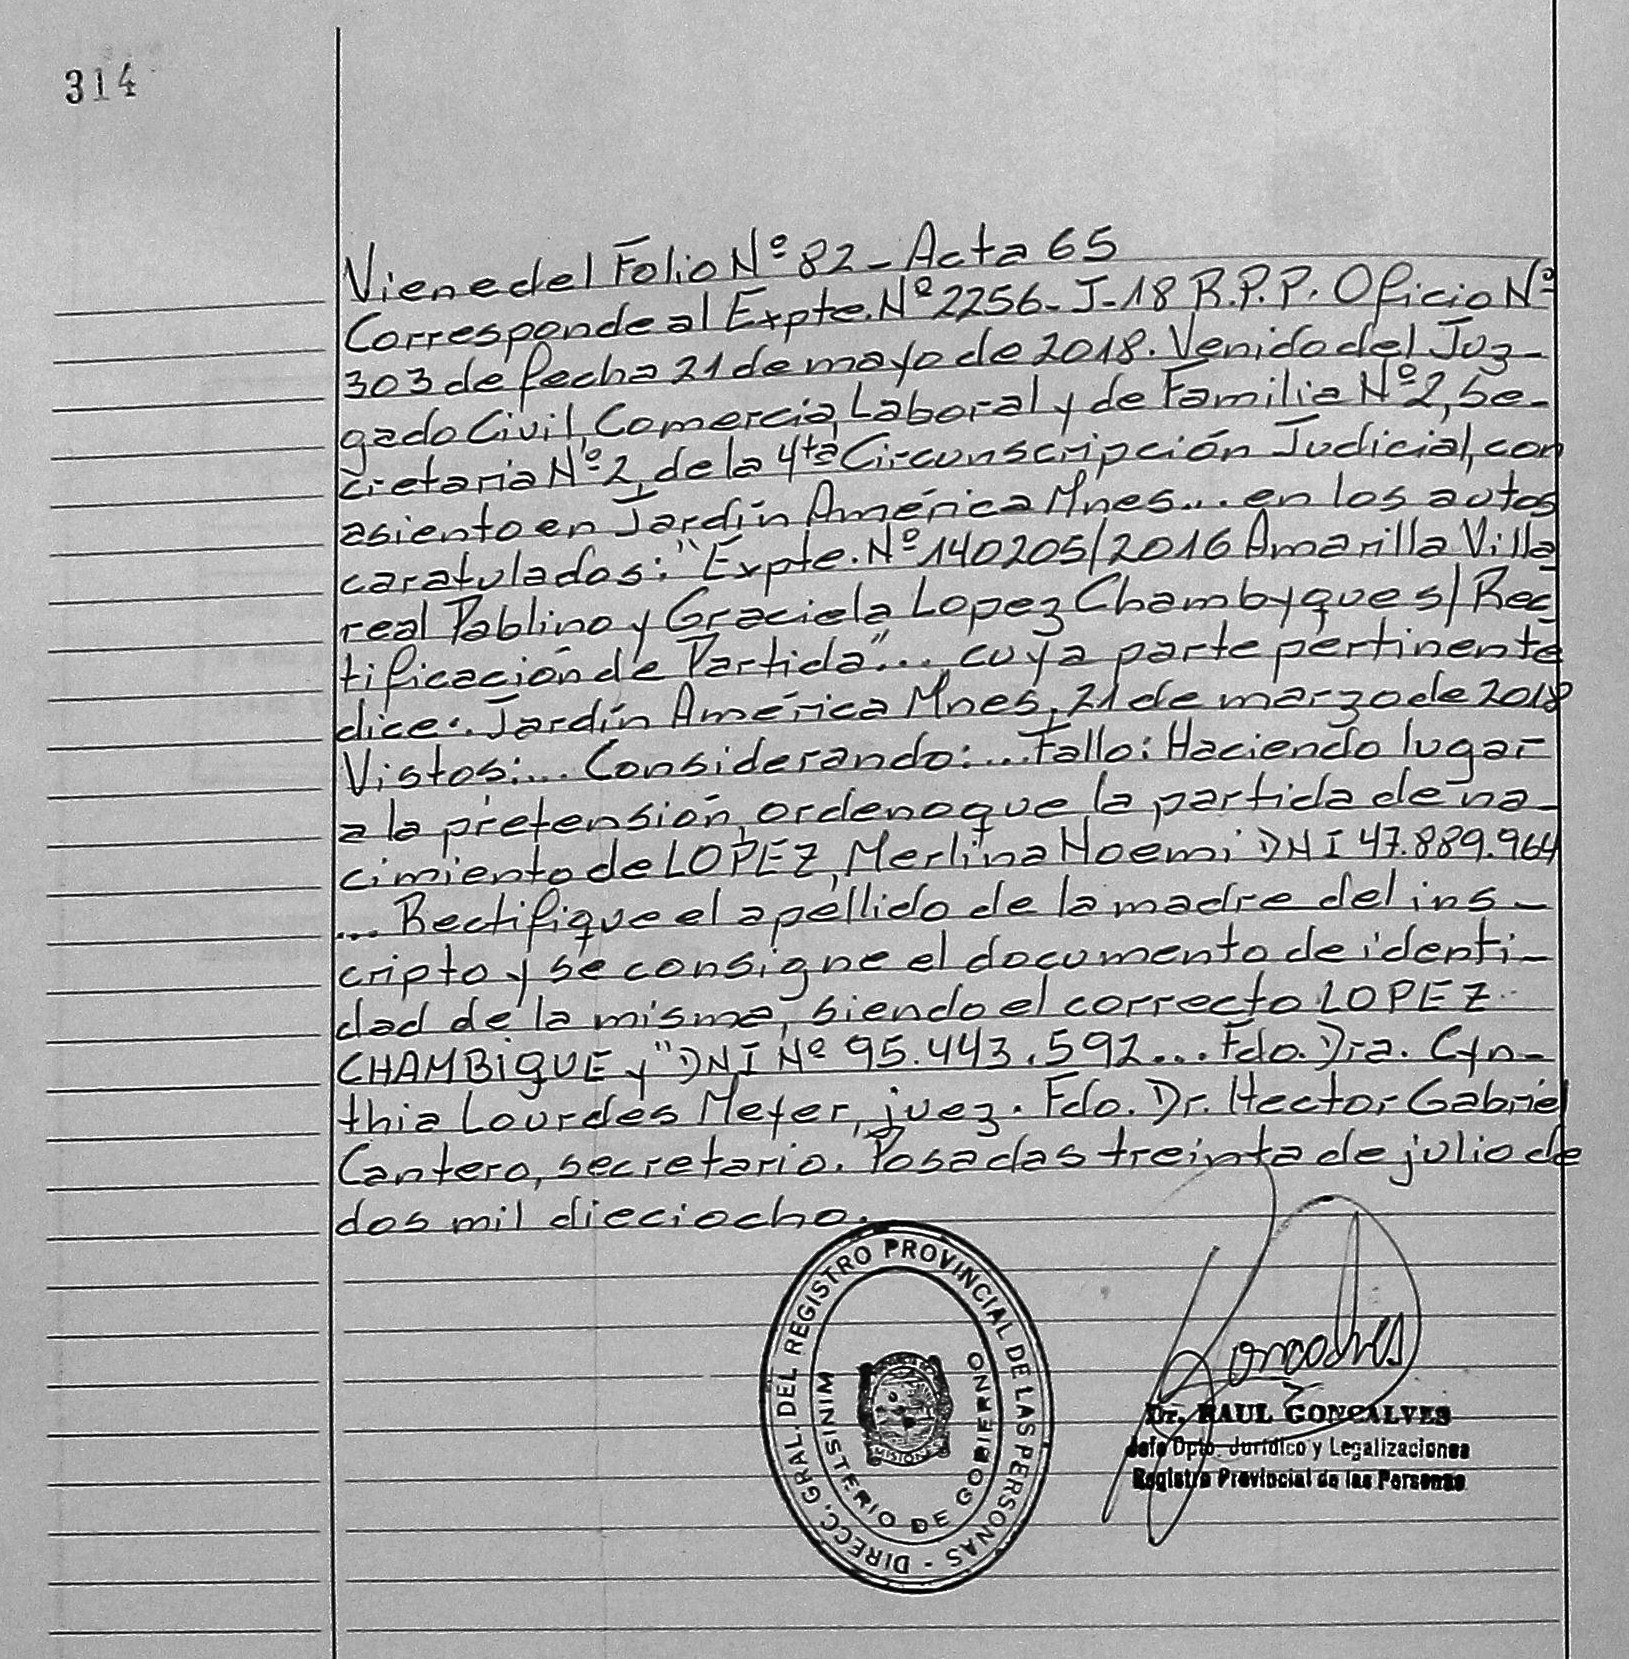 314
Viene del Folio Nº 82 - Acta 65
Corresponde al Expte. Nº 2256-J-18 R.P.P. Oficio Nº
303 de fecha 21 de mayo de 2018. Venido del Juz-
gado Civil, Comercia, Laboral y de Familia Nº 2, Se-
cretaria Nº 2, de la 4ta Circunscripción Judicial, con
asiento en Jardín América Mnes... en los autos
caratulados: "Expte. Nº 140205/2016 Amarilla Villa
real Pablino y Graciela Lopez Chambyque s/ Rec
tificación de Partida"... cuya parte pertinente
dice: Jardín América Mnes, 21 de marzo de 2018
Vistos:... Considerando:... Fallo: Haciendo lugar
a la pretensión, ordeno que la partida de na-
cimiento de LOPEZ, Merlina Noemi DNI 47.889.964
... Rectifique el apellido de la madre del ins-
cripto y se consigne el documento de identi-
dad de la misma, siendo el correcto LOPEZ
CHAMBIQUE y "DNI Nº 95.443.592... Fdo. Dra. Cyn-
thia Lourdes Meyer, juez. Fdo. Dr. Hector Gabriel
Cantero, secretario. Posadas treinta de julio de
dos mil dieciocho.
DIRECC. GRAL. DEL REGISTRO PROVINCIAL DE LAS PERSONAS -
MINISTERIO DE GOBIERNO
MISIONES
Dr. RAUL GONCALVES
Jefe Dpto. Jurídico y Legalizaciones
Registro Provincial de las Personas